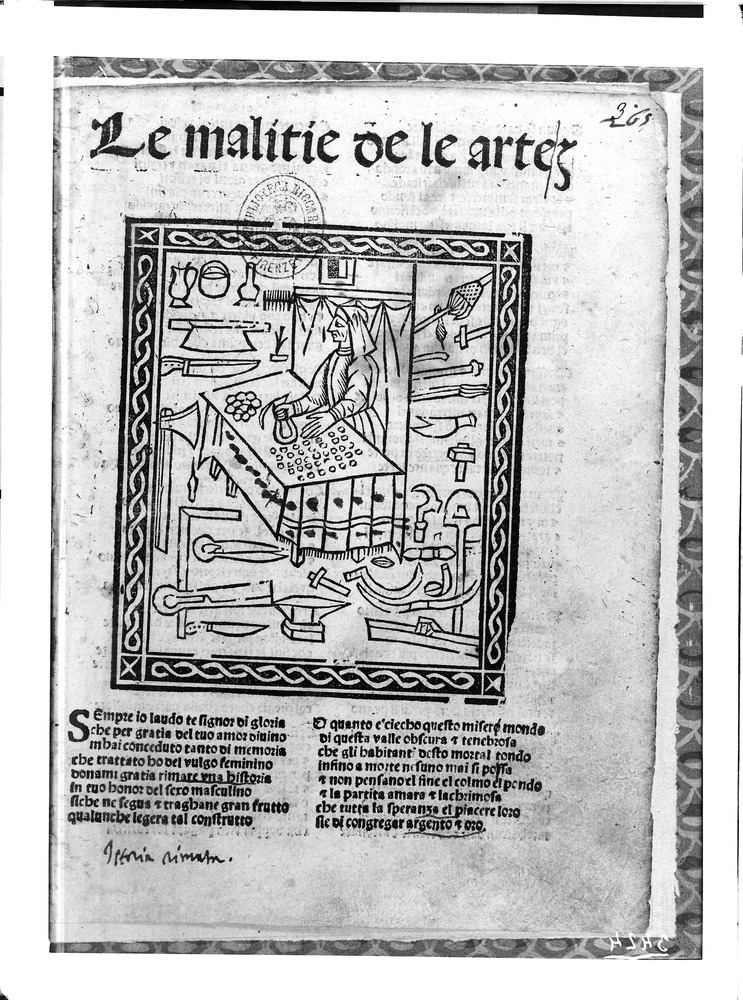 365
Le malitie de le arte
BIBLIOTECA RICCAR
FIRENZE
SEmpre io laudo te signor di gloria
che per gratia del tuo amor diuino
mhai conceduto tanto di memoria
che trattato ho del vulgo feminino
donami gratia rimare vna historia
in tuo honor del sexo masculino
siche ne segua ⁊ traghane gran frutto
qualunche legera tal construtto
O quanto e ciecho questo misero mondo
di questa valle obscura ⁊ tenebrosa
che gli habitanti desto mortal tondo
infino a morte nesuno mai si possa
⁊ non pensano el fine el colmo el pondo
⁊ la partita amara ⁊ lachrimosa
che tutta la speranza el piacere loro
sie di congregar argento ⁊ oro.
Istoria rimata.
3424